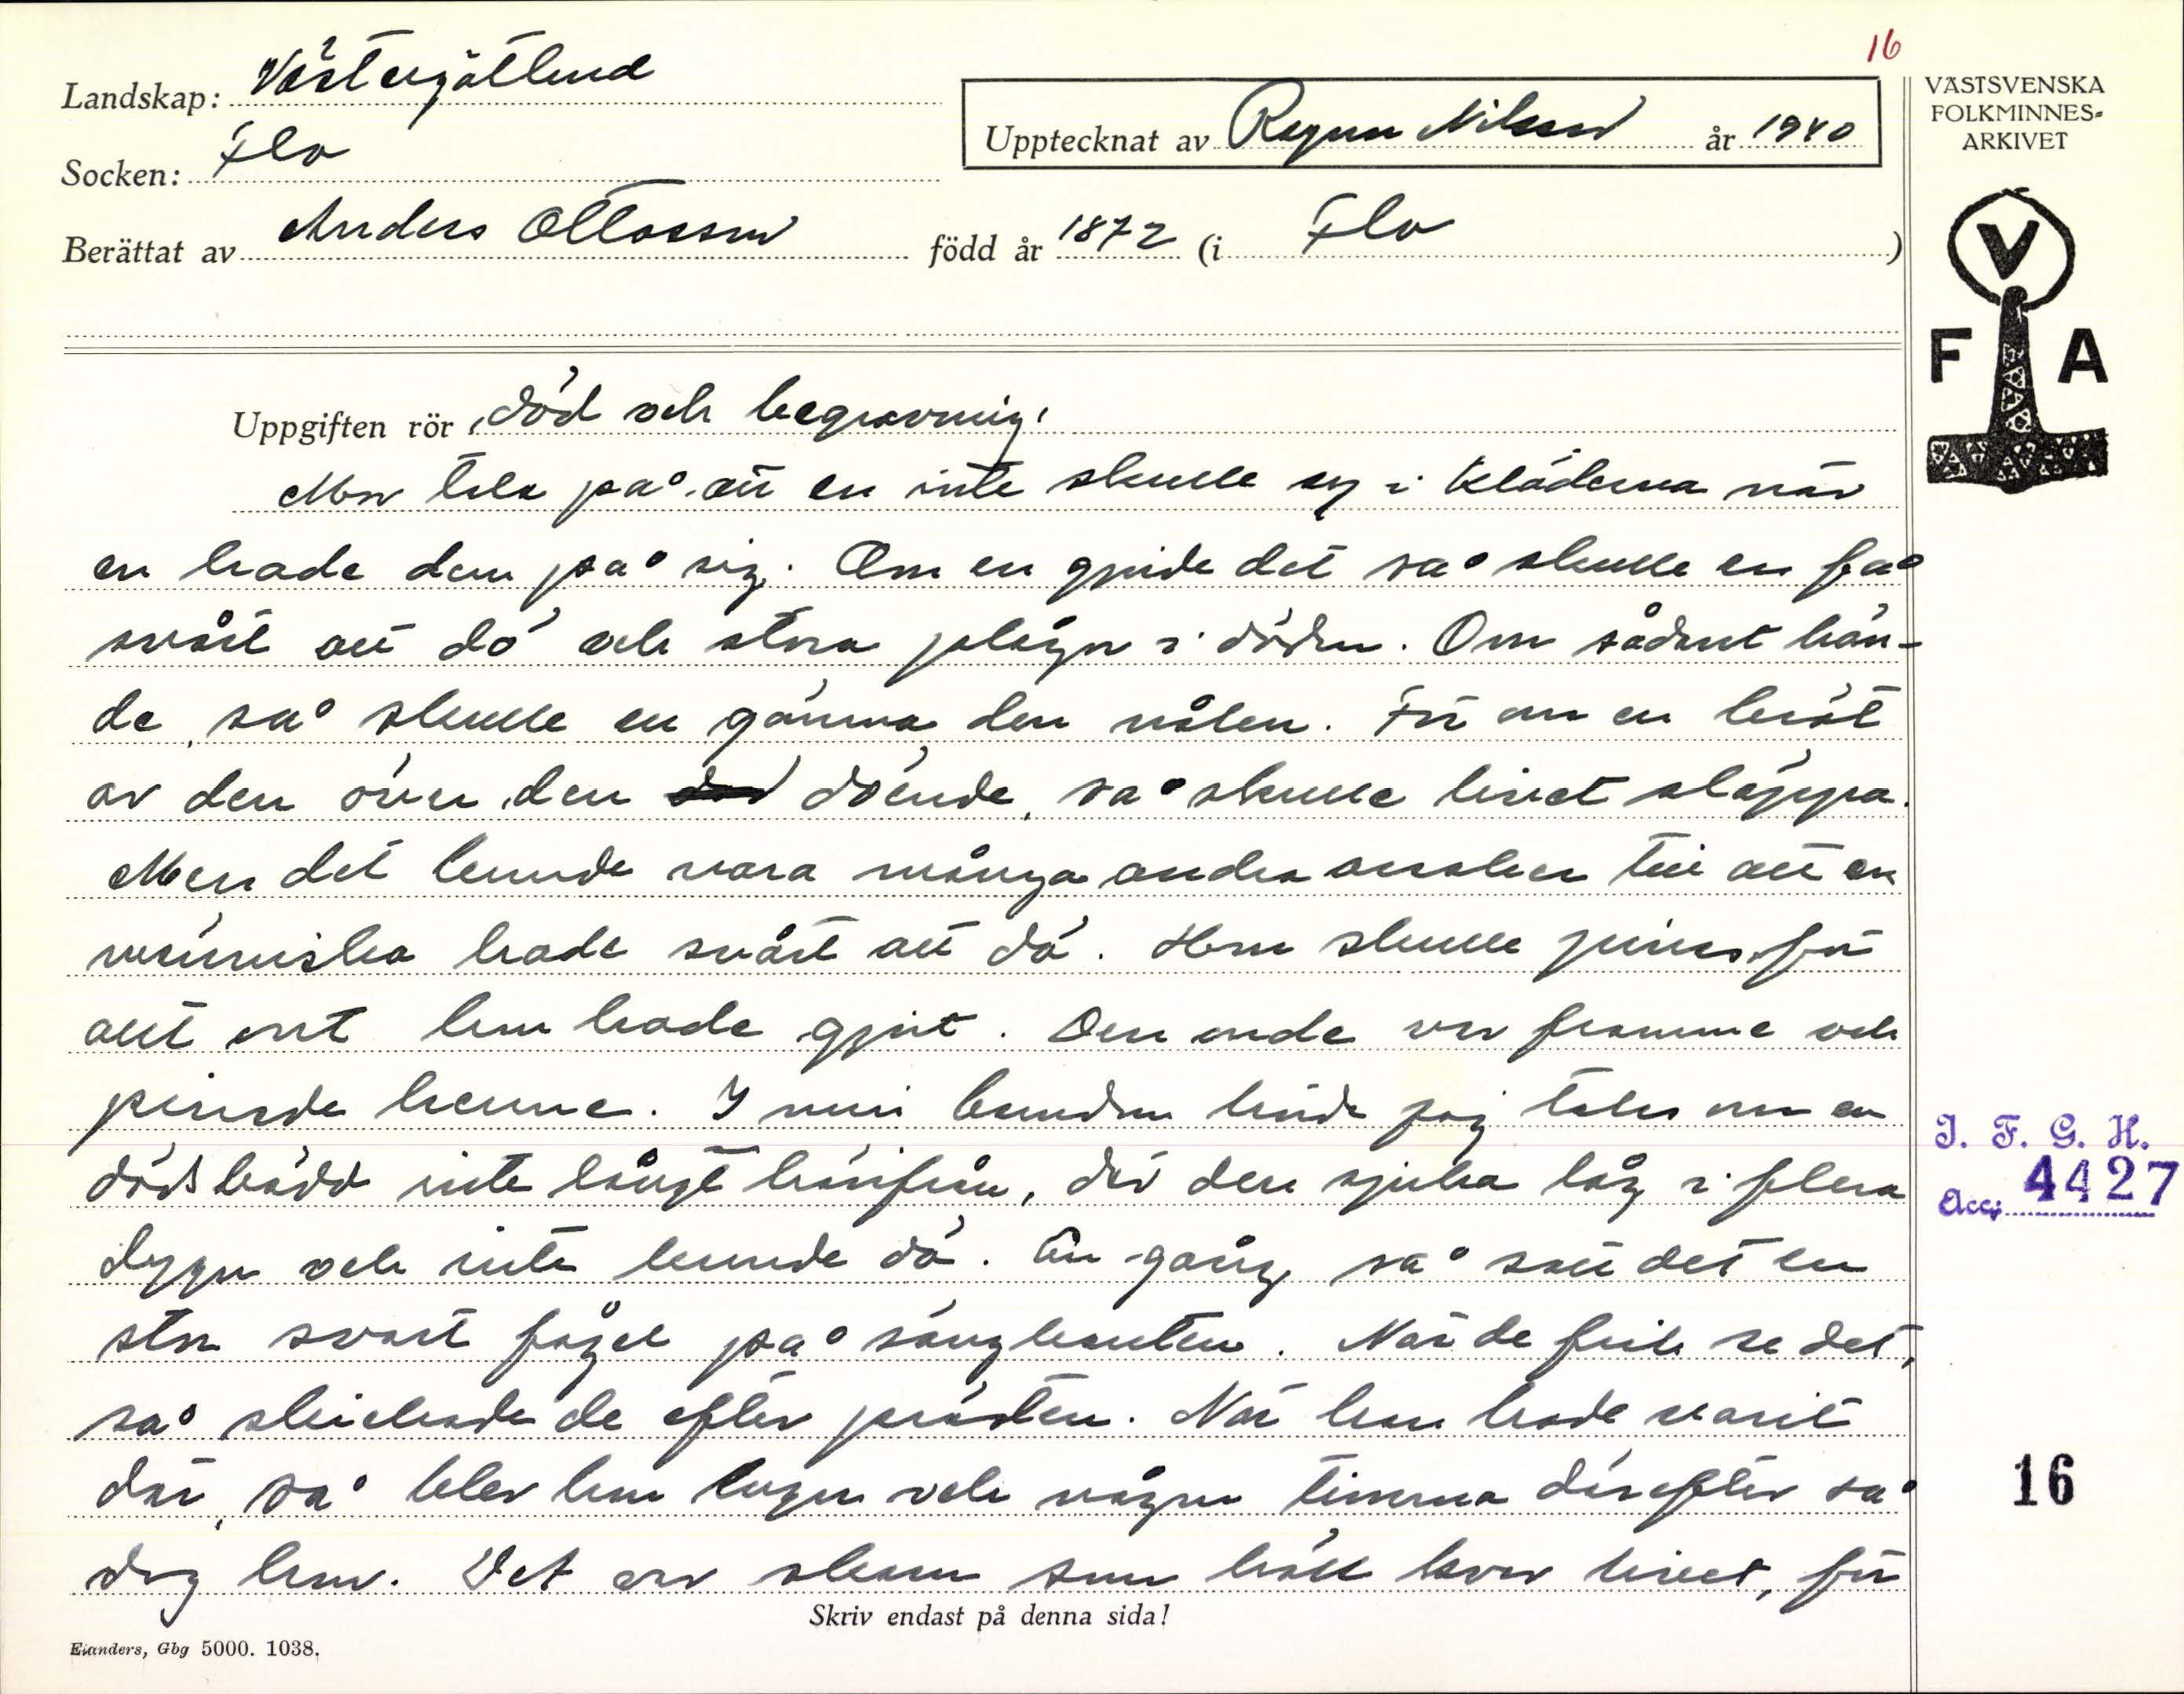 16
Landskap: Västergötland
Socken: Flo
Upptecknat av Ragnar Nilsson år 1940
Berättat av Anders Ottosson född år 1872 (i Flo )
VÄSTSVENSKA
FOLKMINNES-
ARKIVET
V
F A
Uppgiften rör "död och begravning"
Men tala på att en inte skulle sy i kläderna när
en hade dem på sig. Om en gjorde det så skulle en få
svårt att dö och stora plågor i döden. Om sådant hän-
de, så skulle en gömma den nålen. För om en bröt
av den över den döende, så skulle livet släppa.
Men det kunde vara många andra orsaker till att en
människa hade svårt att dö. Hon skulle pinas för
allt ont hon hade gjort. Den onde var framme och
pinade henne. I min barndom hörde jag talas om en
dödsbädd inte långt härifrån, där den sjuka låg i flera
dygn och inte kunde dö. En gång så satt det en
stor svart fågel på sängkanten. När de fick se det,
så skickade de efter prästen. När han hade varit
där, så blev hon lugn och någon timma därefter så
dog hon. Det var skam som höll kvar livet, för
Skriv endast på denna sida!
Elanders, Gbg 5000. 1038.
I. F. G. H.
Acc; 4427
16